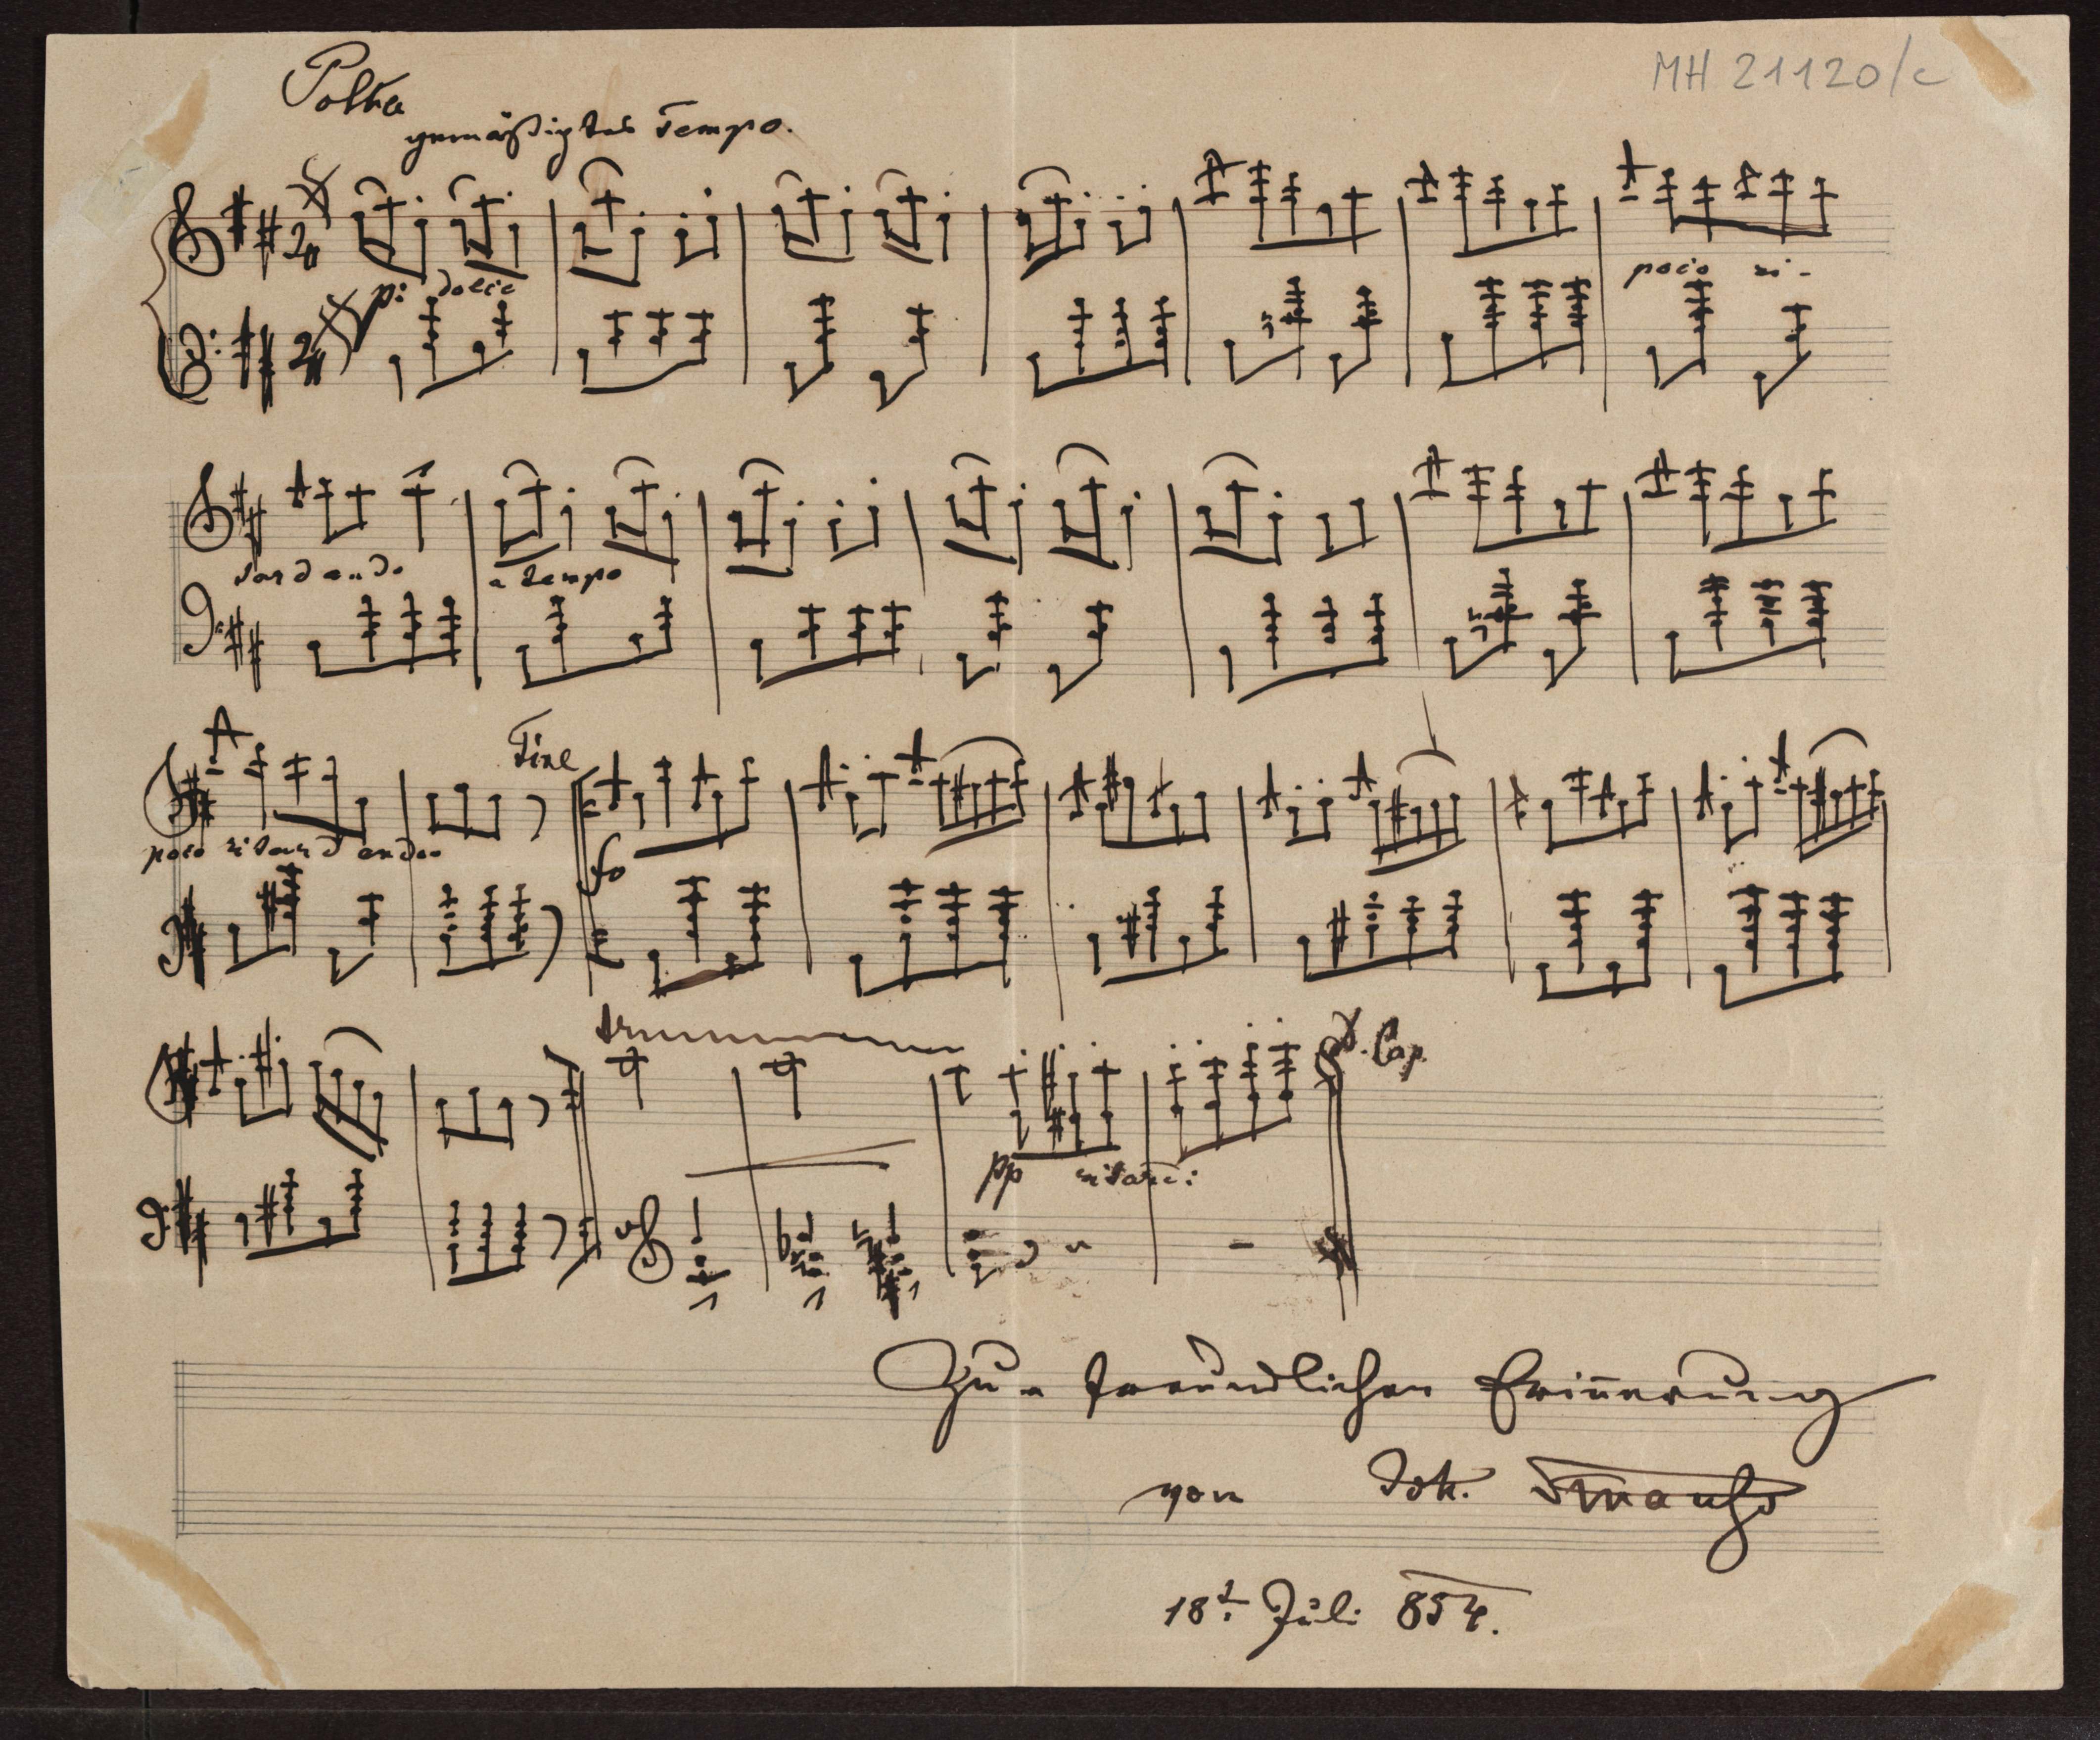 MH 21120/c
Polka
gemäßigtes Tempo.
p: dolce
poco ri-
tardando
a tempo
Fine
poco ritardando
fo
tr
D. Cap.
pp ritard:
Zur freundlichen Erinnerung
von Joh. Strauß
18t. Juli 854.